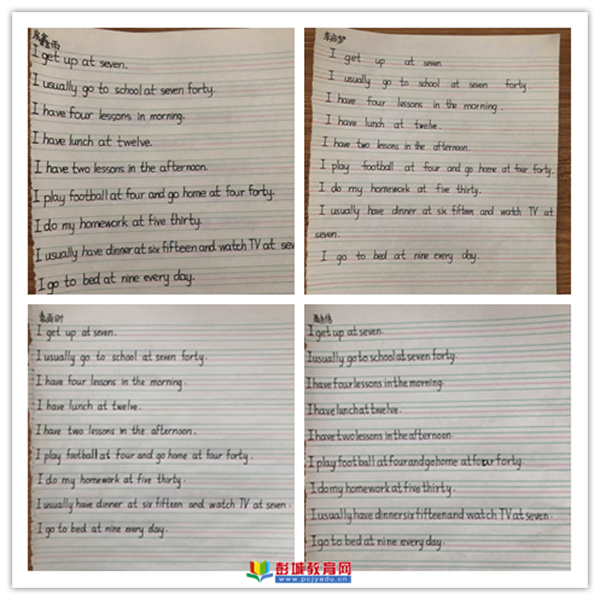 I get up at seven.
I usually go to school at seven forty.
I have four lessons in morning.
I have lunch at twelve.
I have two lessons in the afternoon.
I play football at four and go home at four forty.
I do my homework at five thirty.
I usually have dinner at six fifteen and watch TV at sev
I go to bed at nine every day.
I get up at seven.
I usually go to school at seven forty.
I have four lessons in the morning.
I have lunch at twelve.
I have two lessons in the afternoon.
I play football at four and go home at four forty.
I do my homework at five thirty.
I usually have dinner at six fifteen and watch TV at
seven.
I go to bed at nine every day.
I get up at seven.
I usually go to school at seven forty.
I have four lessons in the morning.
I have lunch at twelve.
I have two lessons in the afternoon.
I play football at four and go home at four forty.
I do my homework at five thirty.
I usually have dinner at six fifteen and watch TV at seven.
I go to bed at nine every day.
I get up at seven.
I usually go to school at seven forty.
I have four lessons in the morning.
I have lunch at twelve.
I have two lessons in the afternoon.
I play football at four and go home at four forty.
I do my homework at five thirty.
I usually have dinner six fifteen and watch TV at seven.
I go to bed at nine every day.
彭城教育网
www.pcjyedu.cn